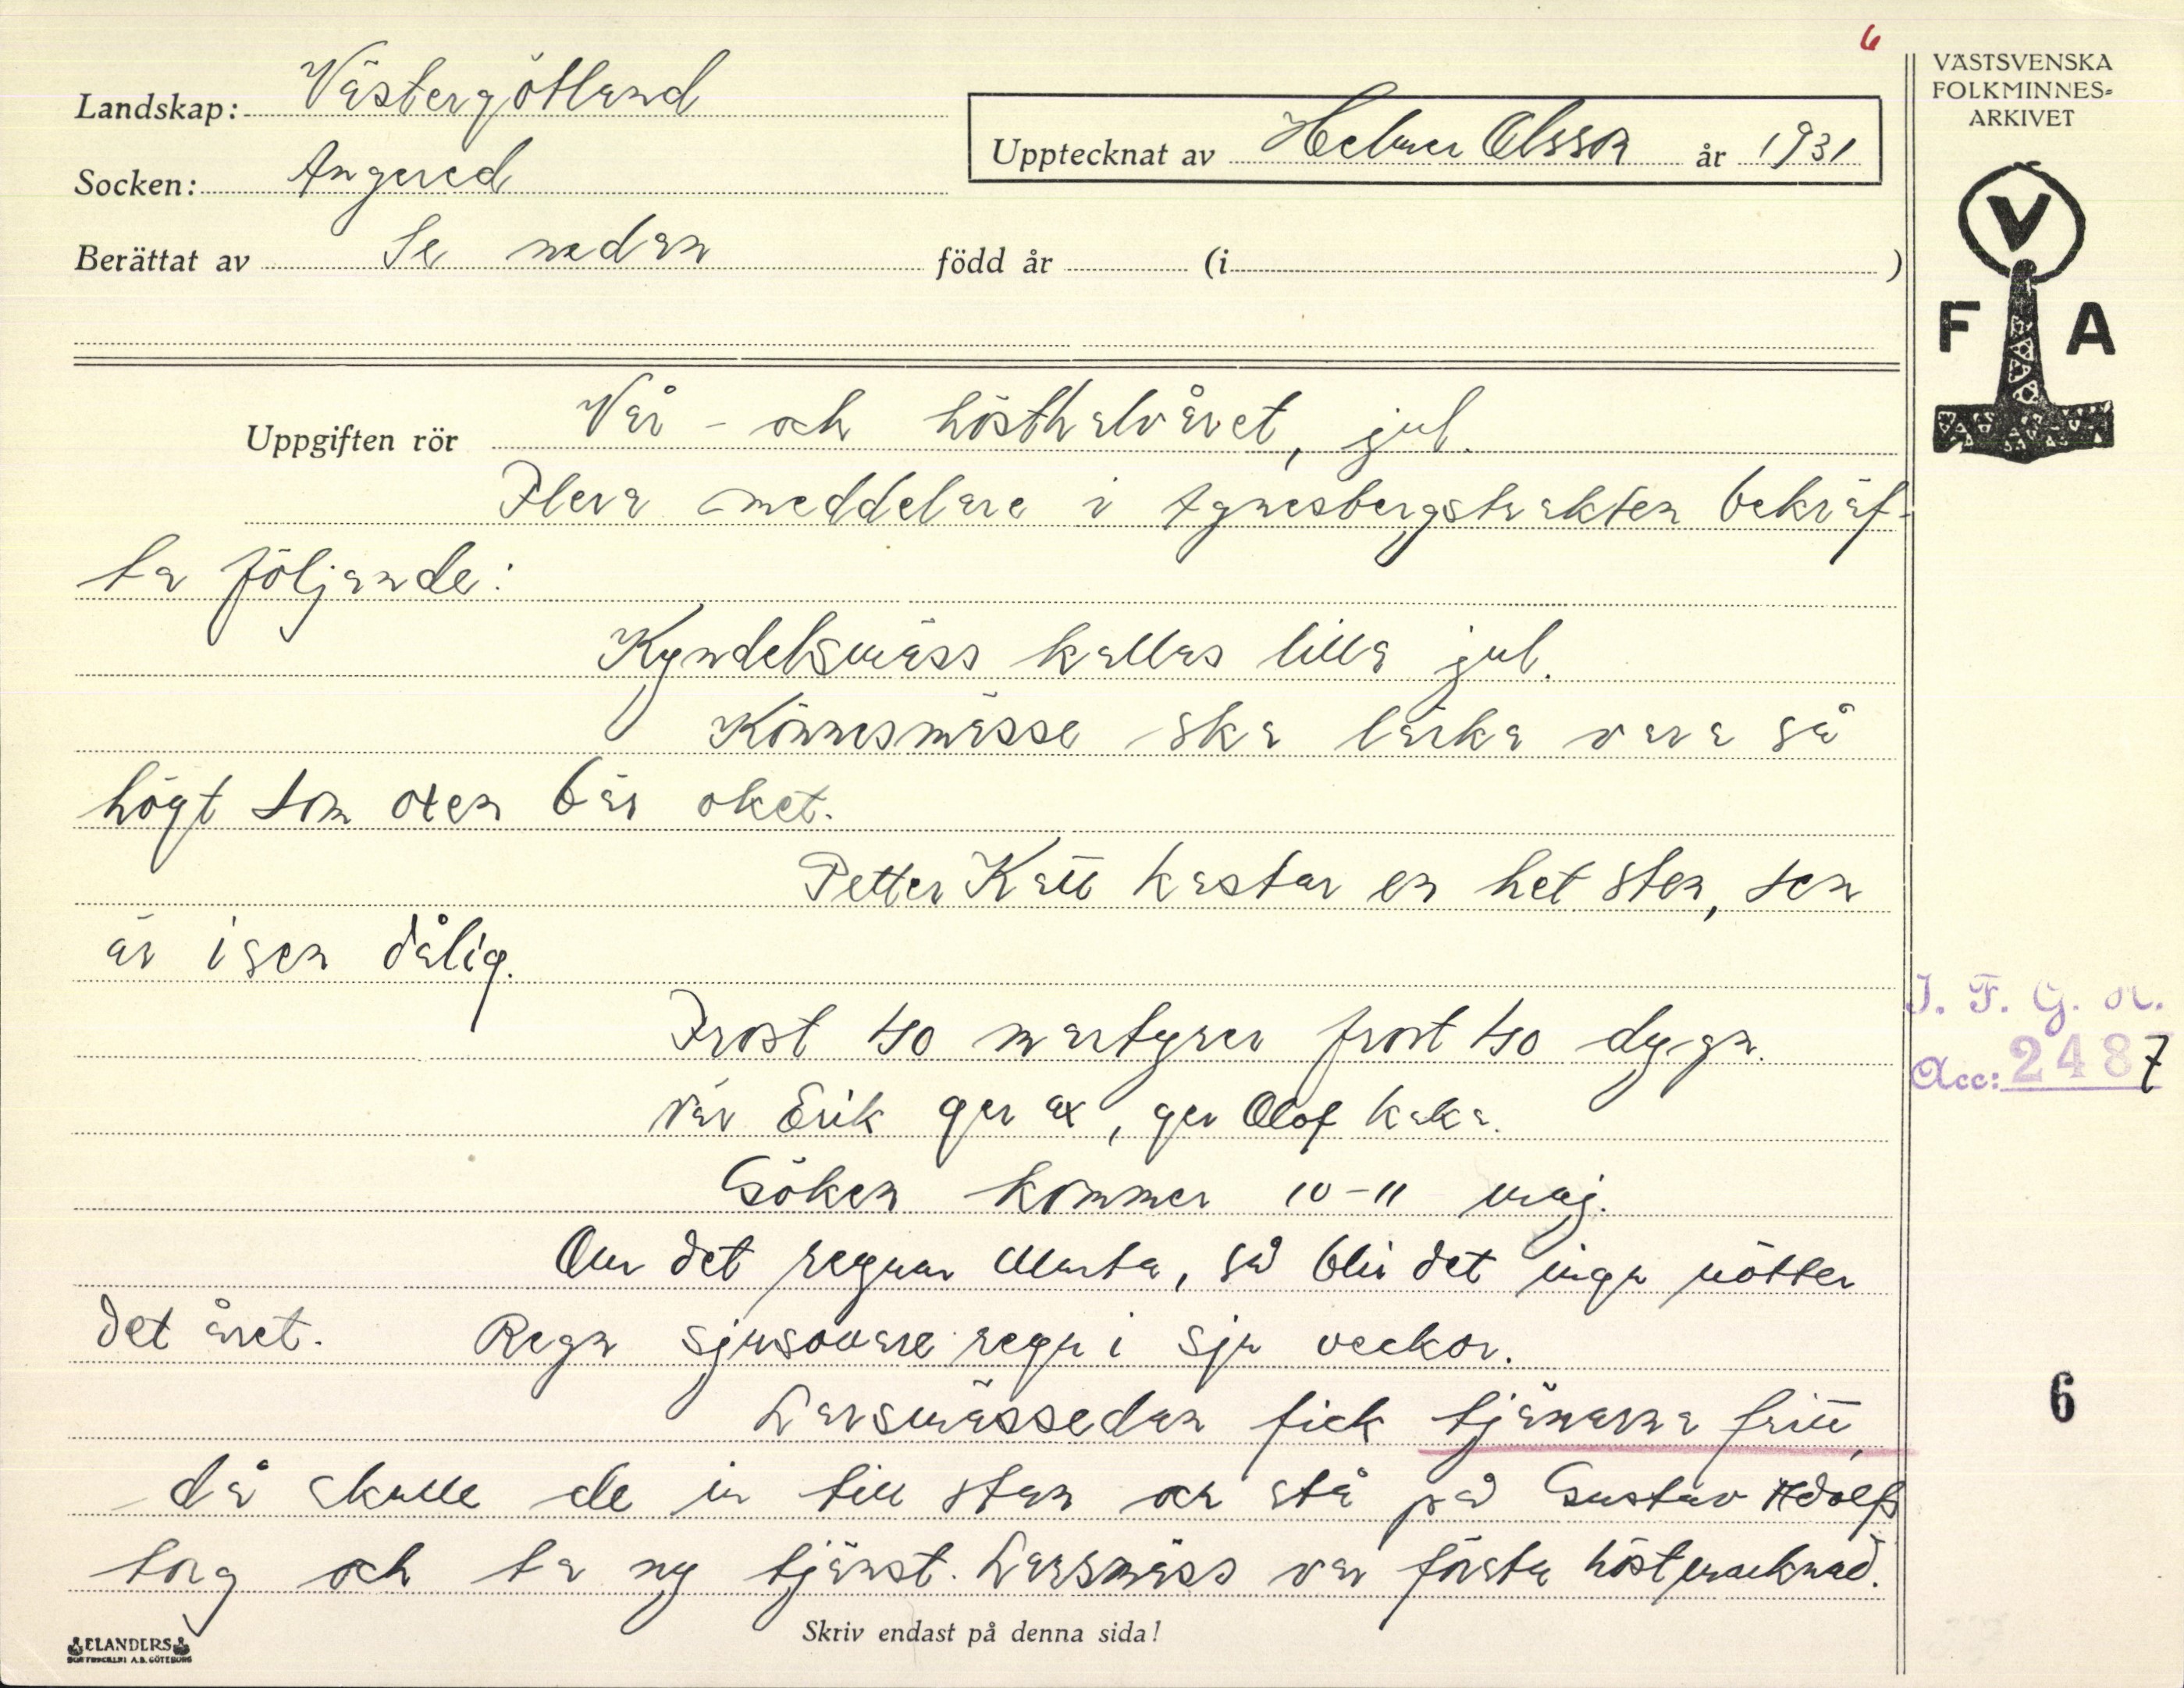 6
VÄSTSVENSKA
FOLKMINNES=
ARKIVET
Landskap: Västergötland
Upptecknat av Helmer Olsson år 1931
Socken: Angered
Berättat av Se nedan född år (i )
V
F A
Uppgiften rör Vår- och hösthalvåret, jul.
Flera meddelare i Agnesbergstrakten bekräf-
ta följande:
Kyndelsmäss kallas lilla jul.
Könnesmässe ska lärka vara så
högt som oxen bär oket.
Petter Katt kastar en het sten, sen
är isen dålig.
Frost 40 martyrer frost 40 dygn.
När Erik ger ax, ger Olof kaka.
Göken kommer 10-11 maj.
Om det regnar Marta, så blir det inga nötter
det året. Regn sjusovare regn i sju veckor.
Larsmässedan fick tjänarna fritt,
då skulle de in till stan och stå på Gustav Adolfs
torg och ta ny tjänst. Larsmäss var första höstmarknad.
J. F. G. H.
Acc: 2487
6
Skriv endast på denna sida!
ELANDERS
BOKTRYCKERI A.B. GÖTEBORG